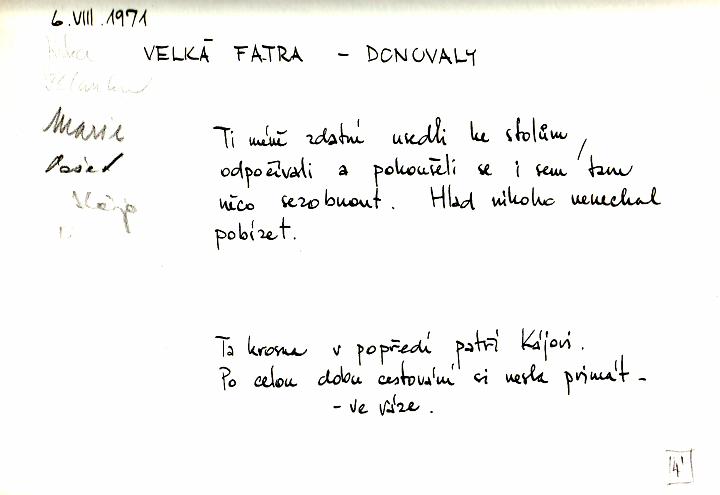 6.VIII.1971
VELKÁ FATRA - DONOVALY
Marie
Ti méně zdatní usedli ke stolům,
odpočívali a pokoušeli se i sem tam
něco sezobnout. Hlad nikoho nenechal
pobízet.
Ta krosna v popředí patří Kájovi.
Po celou dobu cestování si nesla primát -
- ve váze.
4